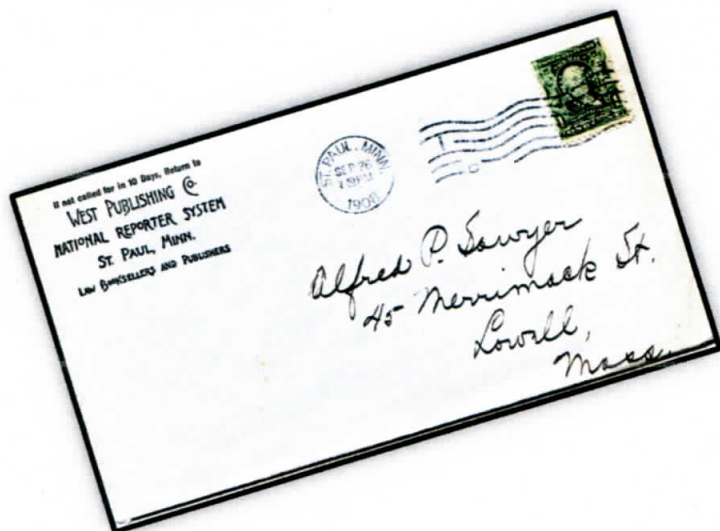 If not called for in 10 Days, Return to
WEST PUBLISHING Co.
NATIONAL REPORTER SYSTEM
ST. PAUL, MINN.
LAW BOOKSELLERS AND PUBLISHERS
ST. PAUL, MINN.
SEP 26
Alfred P. Sawyer
45 Merrimack St.
Lowell,
Mass.